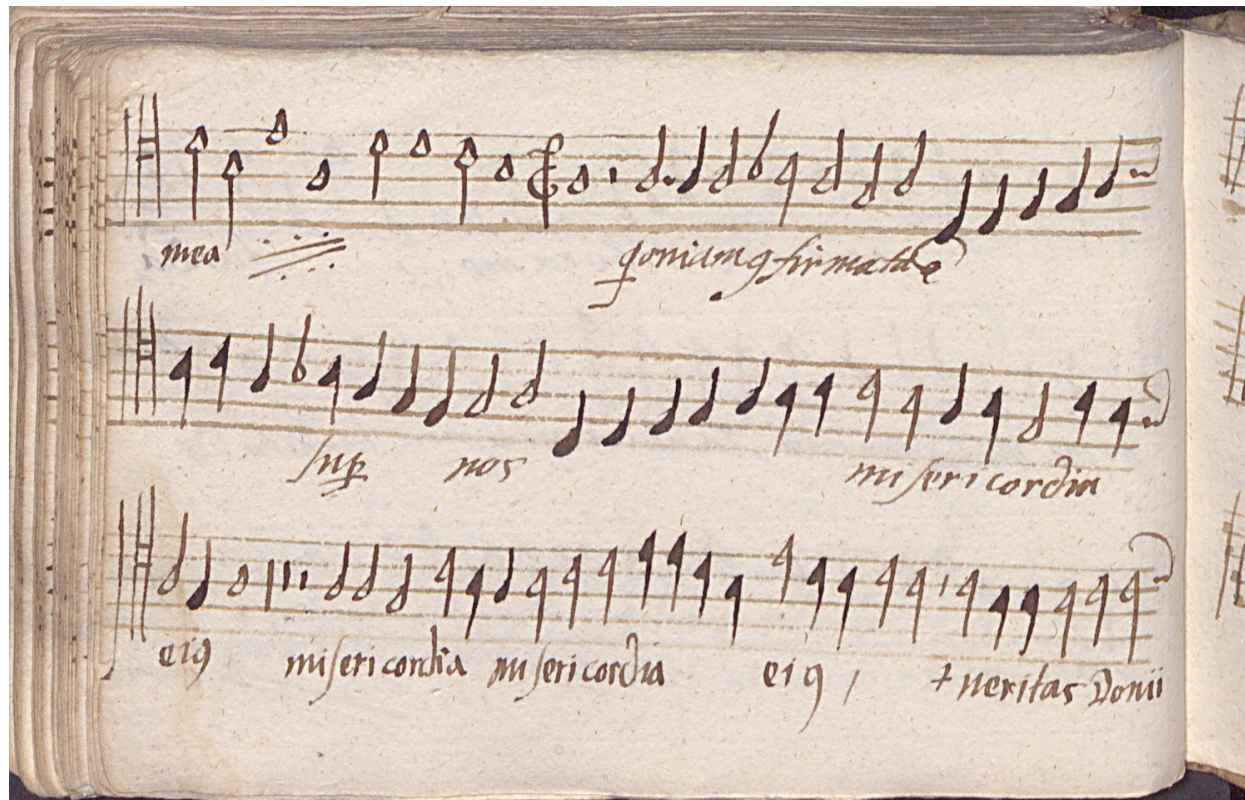 mea qoniam ꝯfirmata ē
sup nos misericordia
eiꝰ misericordia misericordia eiꝰ, + ueritas Domi